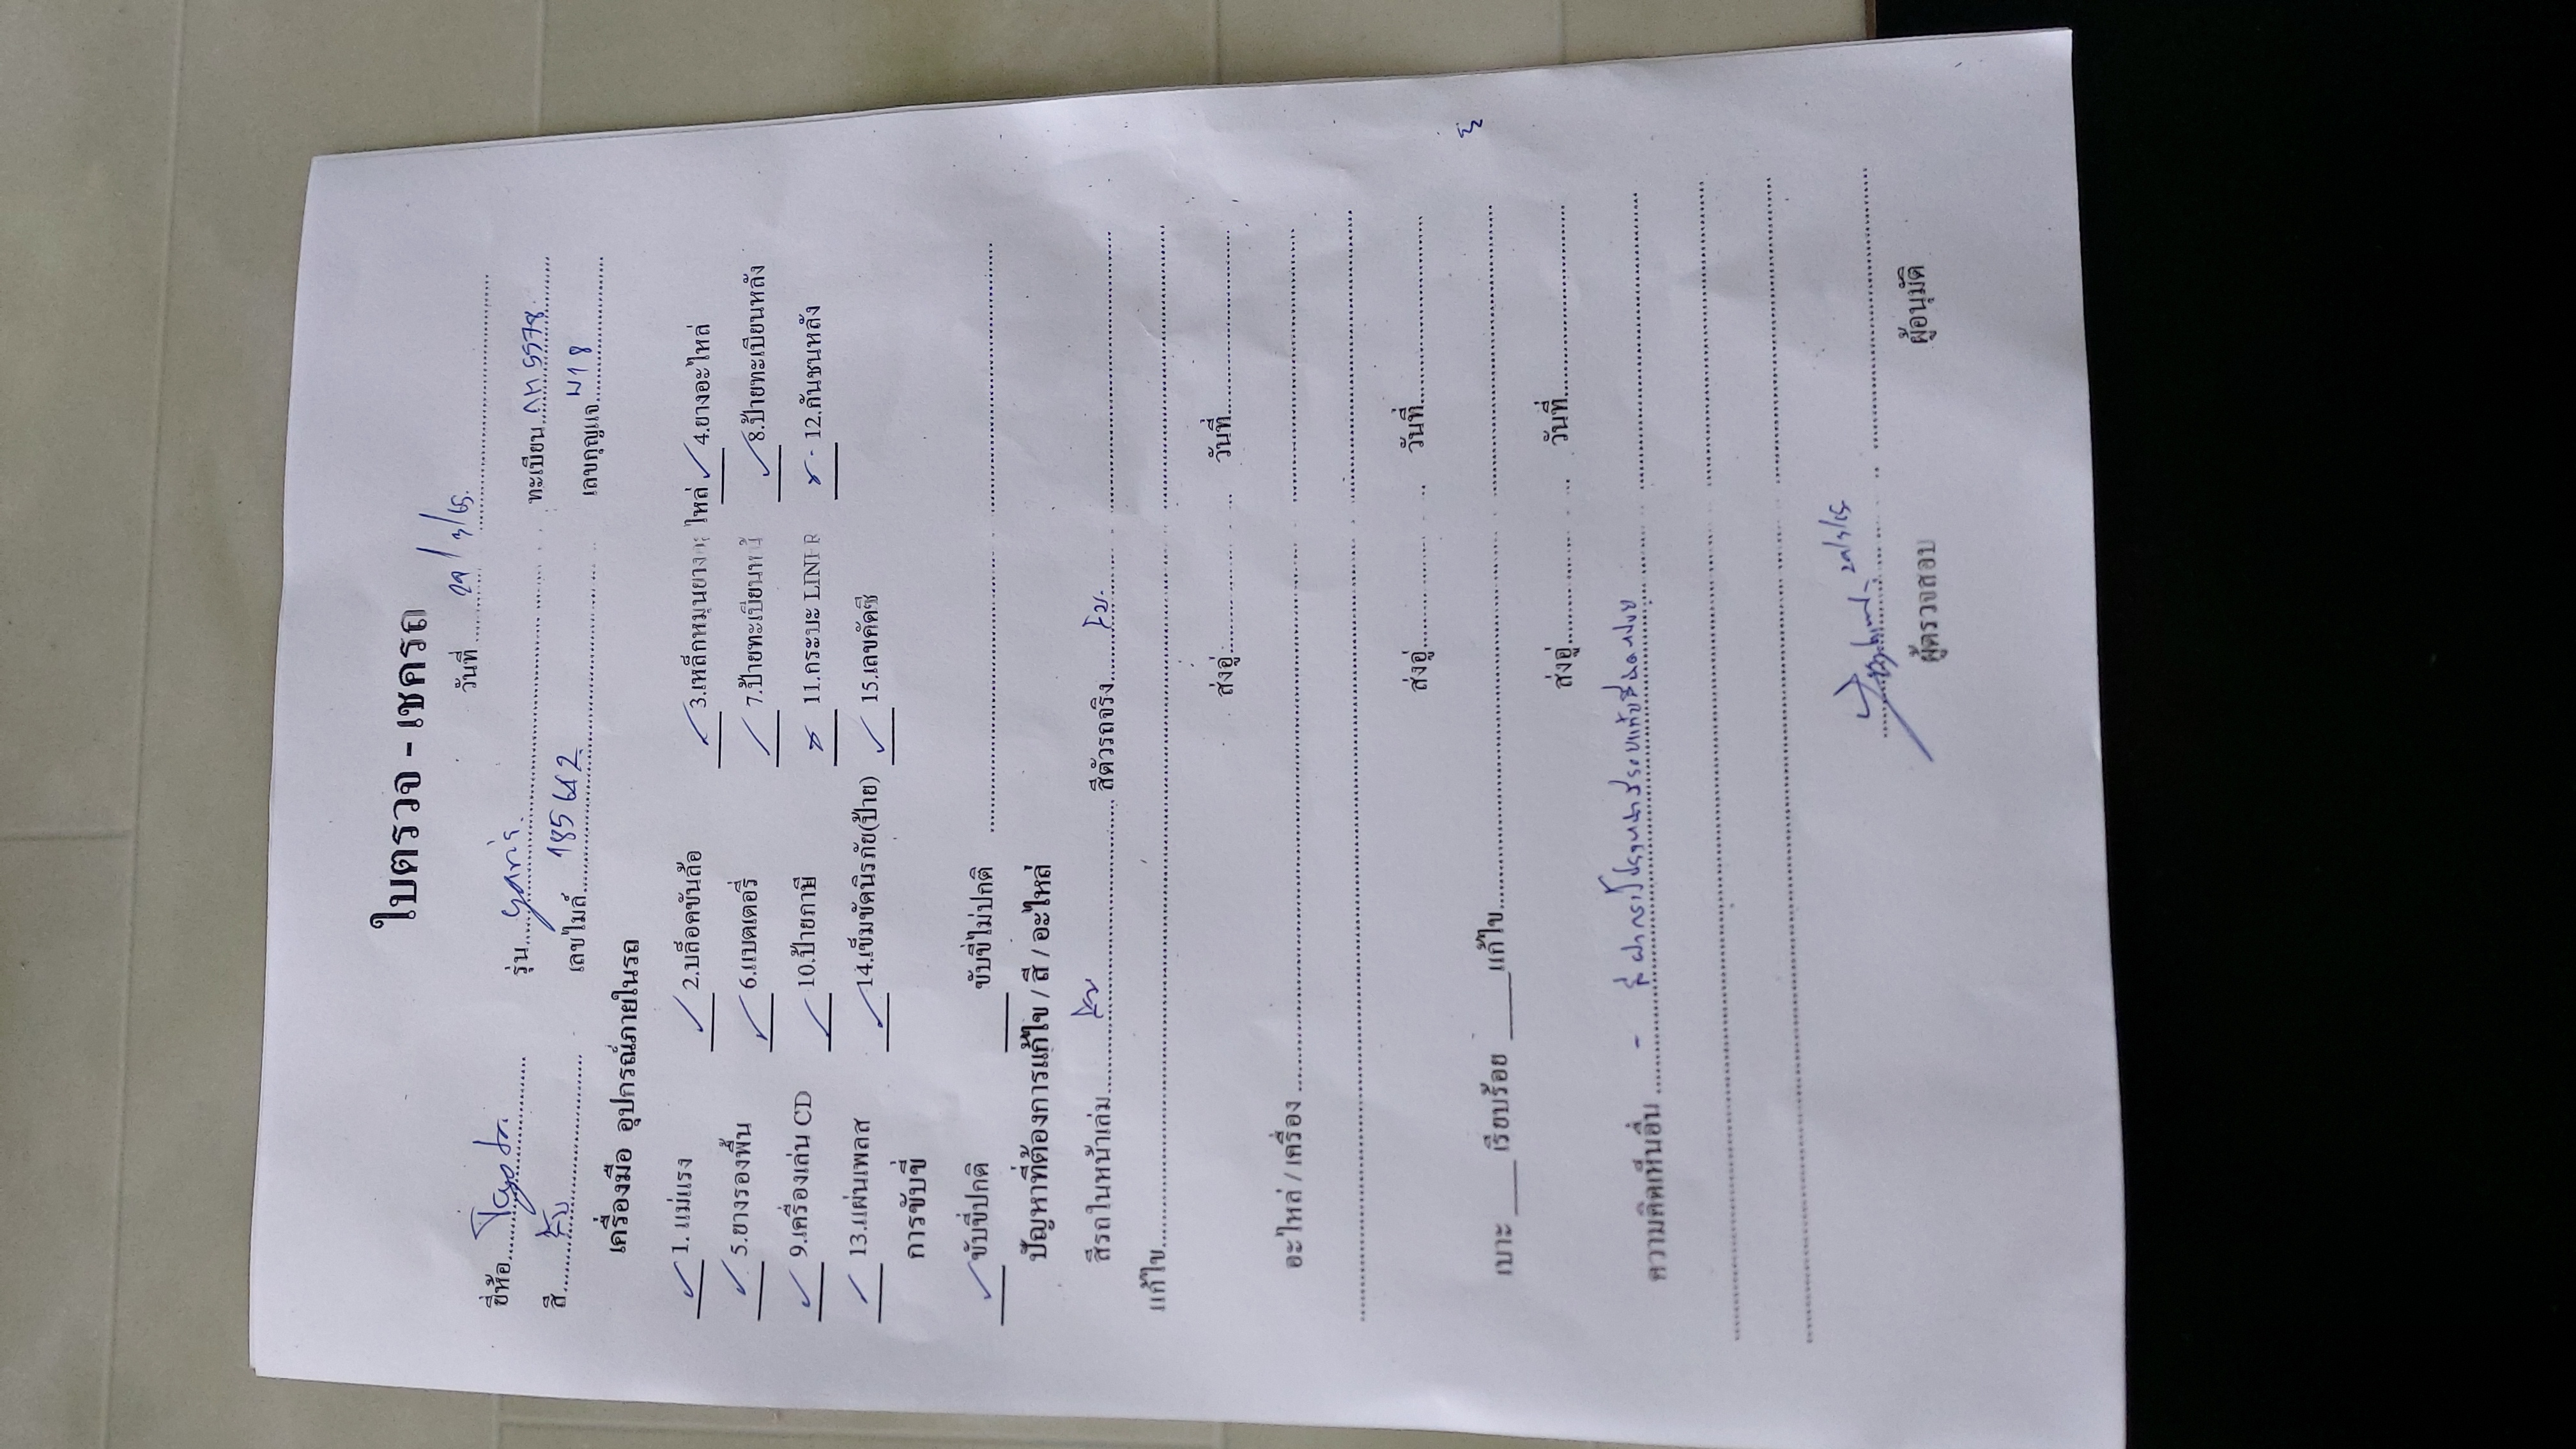 ใบตรวจ - เชครถ
วันที่ 29 / 3/65.
ยี่ห้อ Toyota. รุ่น yaris. ทะเบียน กท 5578
สี เลขไมล์ เลขกุญแจ ม18
เครื่องมือ อุปกรณ์ภายในรถ
✓ 1. แม่แรง ✓ 2.บล็อคขันล้อ ✓ 3.เหล็กหมุนยางอะไหล่ ✓ 4.ยางอะไหล่
✓ 5.ยางรองพื้น ✓ 6.แบตเตอรี่ ✓ 7.ป้ายทะเบียนหน้า ✓ 8.ป้ายทะเบียนหลัง
✓ 9.เครื่องเล่น CD ✓ 10.ป้ายภาษี × 11.กระบะ LINER × - 12.กันชนหลัง
✓ 13.แผ่นเพลส ✓ 14.เข็มขัดนิรภัย(ป้าย) ✓ 15.เลขคัดซี
การขับขี่
✓ ขับขี่ปกติ ขับขี่ไม่ปกติ
ปัญหาที่ต้องการแก้ไข / สี / อะไหล่
สีรถในหน้าเล่ม สีตัวรถจริง
แก้ไข
ส่งอู่ วันที่
อะไหล่ / เครื่อง
ส่งอู่ วันที่
เบาะ เรียบร้อย แก้ไข
ส่งอู่ วันที่
ความคิดเห็นอื่น -
29/3/65
ผู้ตรวจสอบ ผู้อนุมัติ